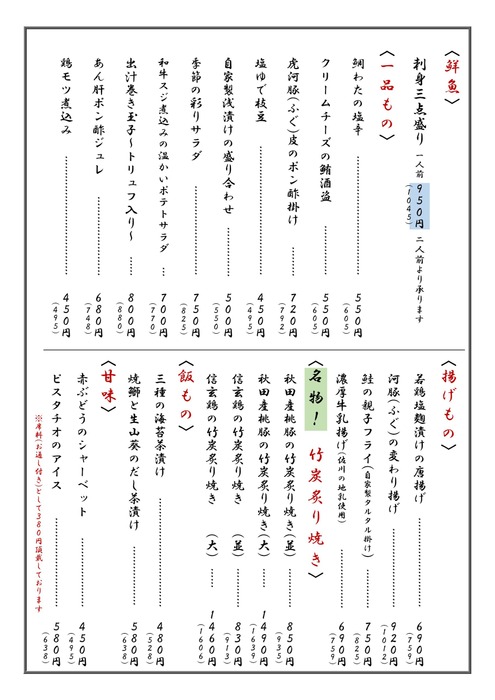 〈鮮魚〉
刺身三点盛り 一人前 950円(1045) 二人前より承ります
〈一品もの〉
鯛わたの塩辛 …… 550円(605)
クリームチーズの鮪酒盗 …… 550円(605)
虎河豚(ふぐ)皮のポン酢掛け …… 720円(792)
塩ゆで枝豆 …… 450円(495)
自家製浅漬けの盛り合わせ …… 500円(550)
季節の彩りサラダ …… 750円(825)
和牛スジ煮込みの温かいポテトサラダ … 700円(770)
出汁巻き玉子〜トリュフ入り〜 …… 800円(880)
あん肝ポン酢ジュレ …… 680円(748)
鶏モツ煮込み …… 450円(495)
〈揚げもの〉
若鶏塩麹漬けの唐揚げ …… 690円(759)
河豚(ふぐ)の変わり揚げ …… 920円(1012)
鮭の親子フライ(自家製タルタル掛け) …… 750円(825)
濃厚牛乳揚げ(佐川の地乳使用) …… 690円(759)
〈名物! 竹炭炙り焼き〉
秋田産桃豚の竹炭炙り焼き(並) …… 850円(935)
秋田産桃豚の竹炭炙り焼き(大) …… 1490円(1639)
信玄鶏の竹炭炙り焼き (並) …… 830円(913)
信玄鶏の竹炭炙り焼き (大) …… 1460円(1606)
〈飯もの〉
三種の海苔茶漬け …… 480円(528)
焼鰤と生山葵のだし茶漬け …… 580円(638)
〈甘味〉
赤ぶどうのシャーベット …… 450円(495)
ピスタチオのアイス …… 580円(638)
※席料(お通し付き)として380円頂戴しております